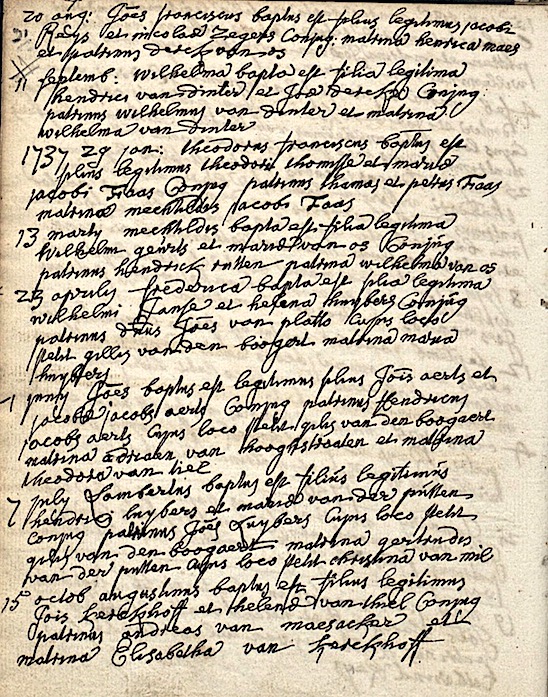 20 aug: Joēs franciscus baptus est filius legitimus jacobi
Reys et nicolae Zegers Conjug: matrina henrica maes
et patrinus derck van os
11 septemb: wilhelma bapta est filia legitima
hendrici van dinter et Conjug:
patrinus wilhelmus van dinter et matrina
wilhelma van dinter
1737 29 jan: theodorus franciscus baptus est
filius legitimus theodori thomisse et maria
jacobi Faas Conjug patrinus thomas et petrus Faas
matrina mechtildis jacobi Faas
13 marty mechtildis bapta est filia legitima
wilhelm geurts et maria van os Conjug
patrinus hendrick rutten patrina wilhelma van os
25 aprilis frederica bapta est filia legitima
wilhelmi Janse et helena huybers Conjug
patrinus dnus Joēs van platto Cujus loco
stetit gillis van den boogert matrina maria
huybers
1 juny Joēs baptus est legitimus filius Jois aerts et
jacoba jacobs aerts Conjug patrinus Hendricus
jacobs aerts Cujus loco stetit gilis van den boogaert
matrina adriaen van hooghstraaten et matrina
theodora van tiel
7 july Lambertus baptus est filius legitimus
hendrici huybers et maria van der putten
Conjug patrinus Joēs Luybers Cujus loco stetit
gilis van den boogaert matrina gertrudis
van der putten Cujus loco stetit christina van mil
15 octob augustinus baptus est filius legitimus
Jois kerckhoff et helena van thiel Conjug
patrinus andreas van maesacker et
matrina Elisabetha van kerckhoff